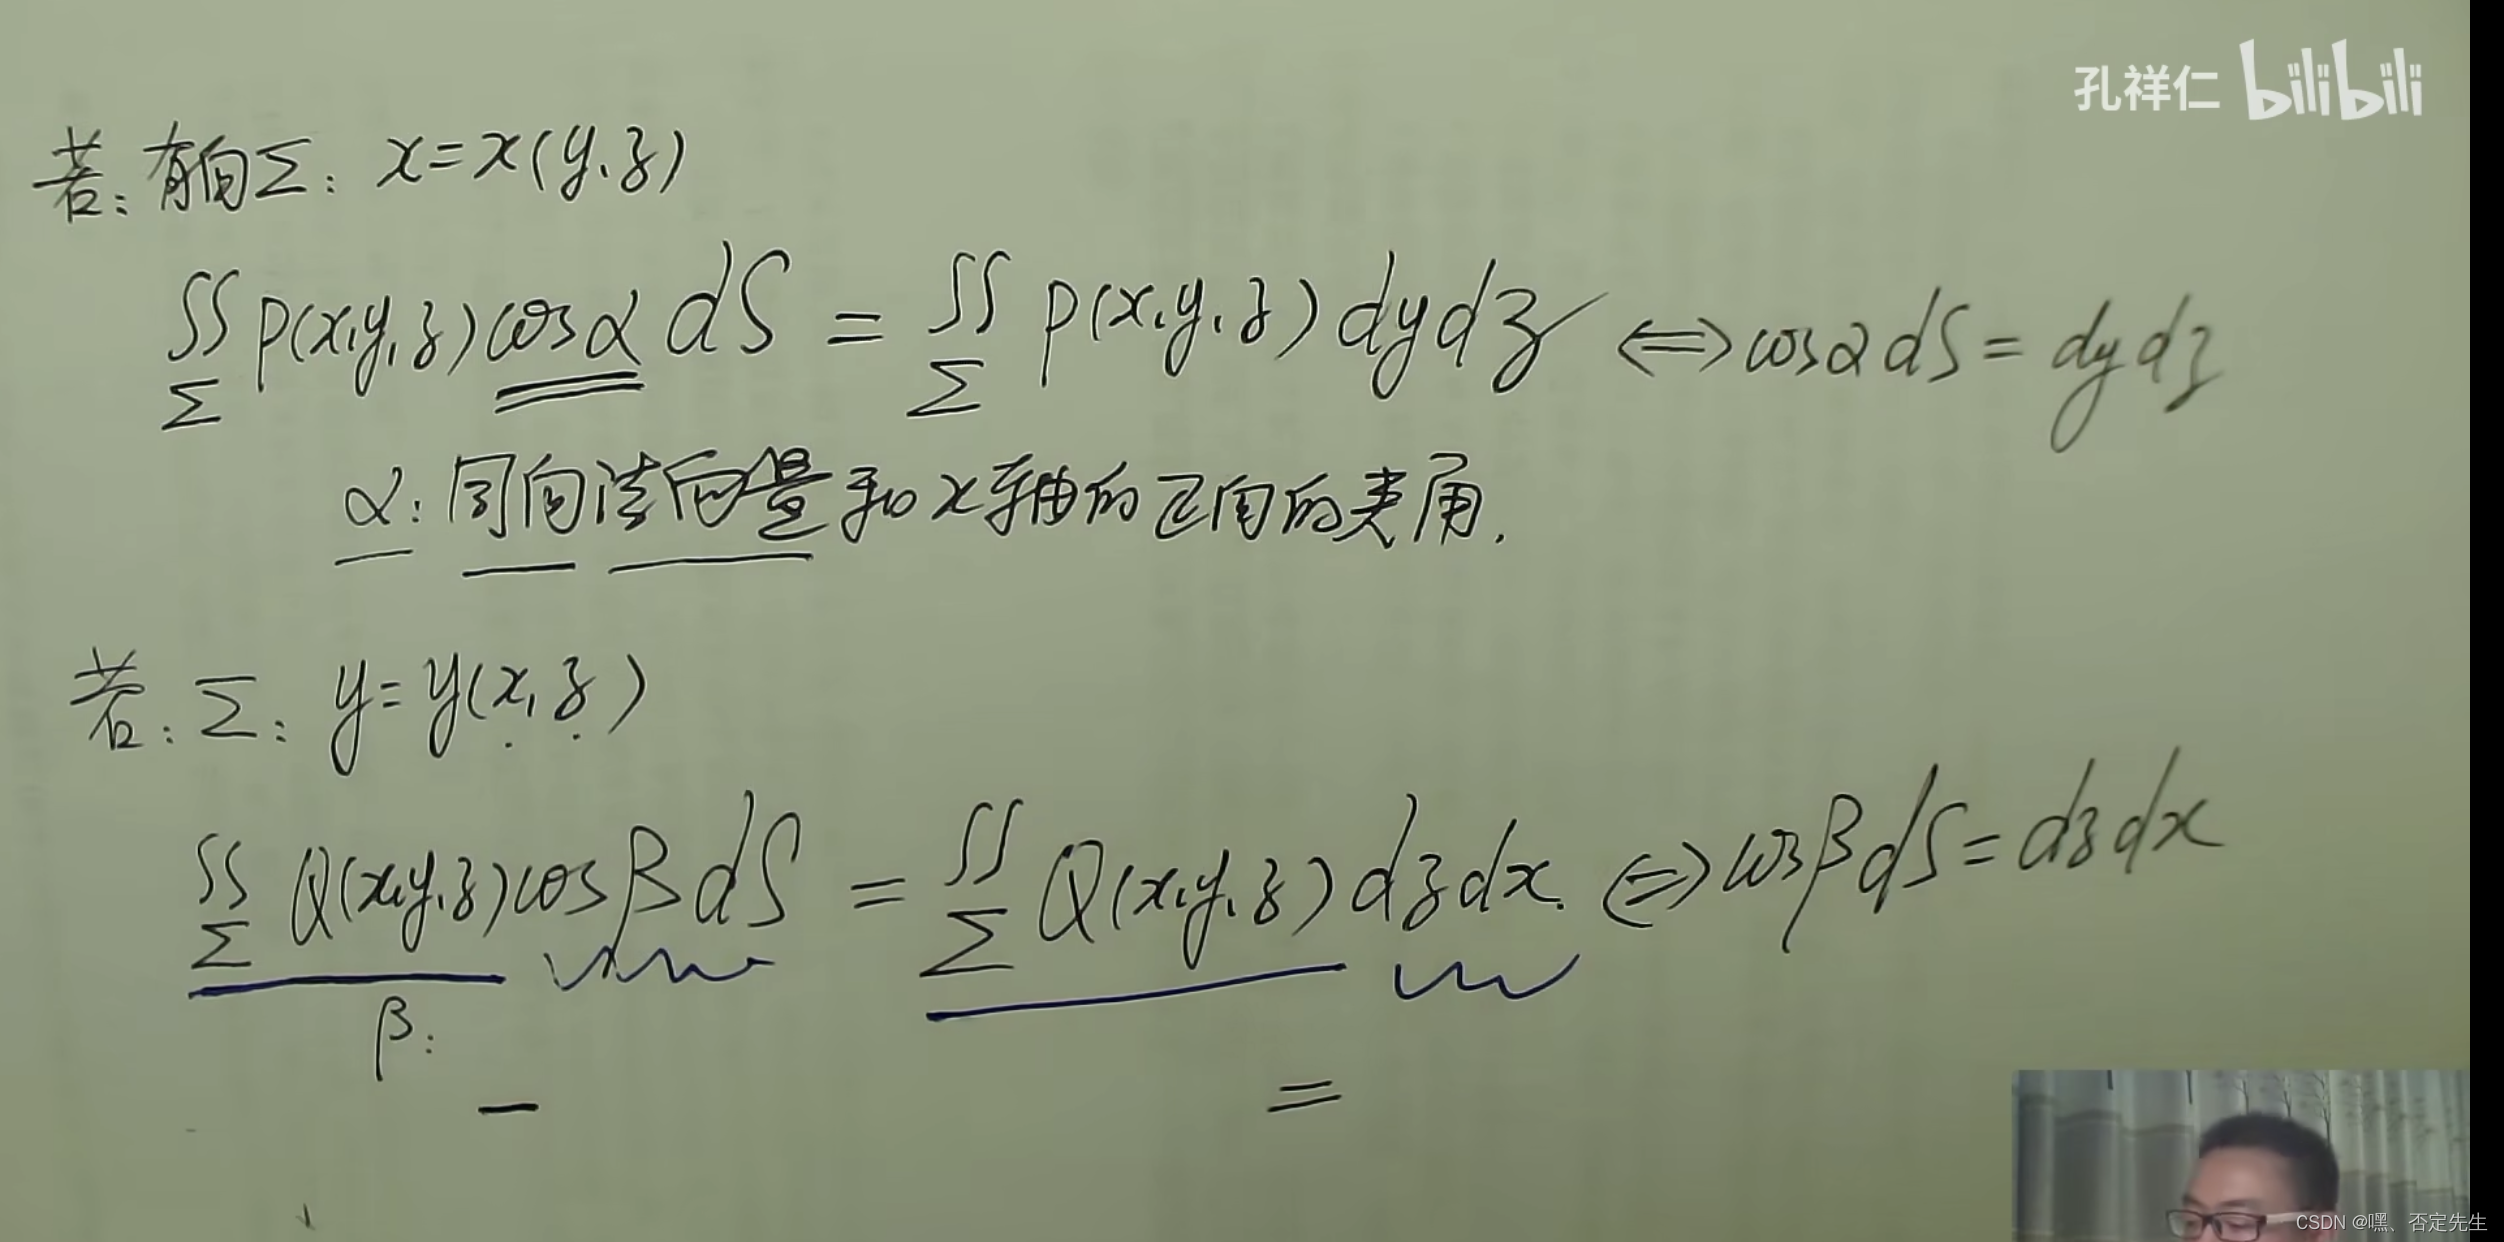 孔祥仁 bilibili
若:有向Σ: x=x(y,z)
∬_Σ P(x,y,z)cosα dS = ∬_Σ P(x,y,z)dydz ⟺ cosα dS = dydz
α: 同向法向量和x轴的正向的夹角.
若:Σ: y=y(x,z)
∬_Σ Q(x,y,z)cosβ dS = ∬_Σ Q(x,y,z)dzdx. ⟺ cosβ dS = dzdx
β:
=
CSDN @嘿、否定先生